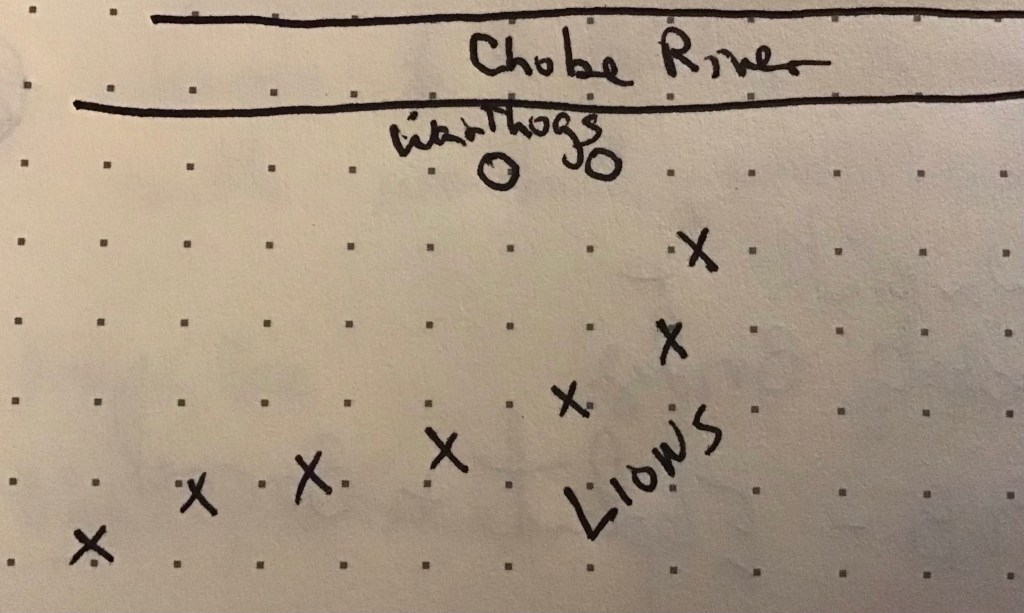 Chobe River
WarThogs
LIONS